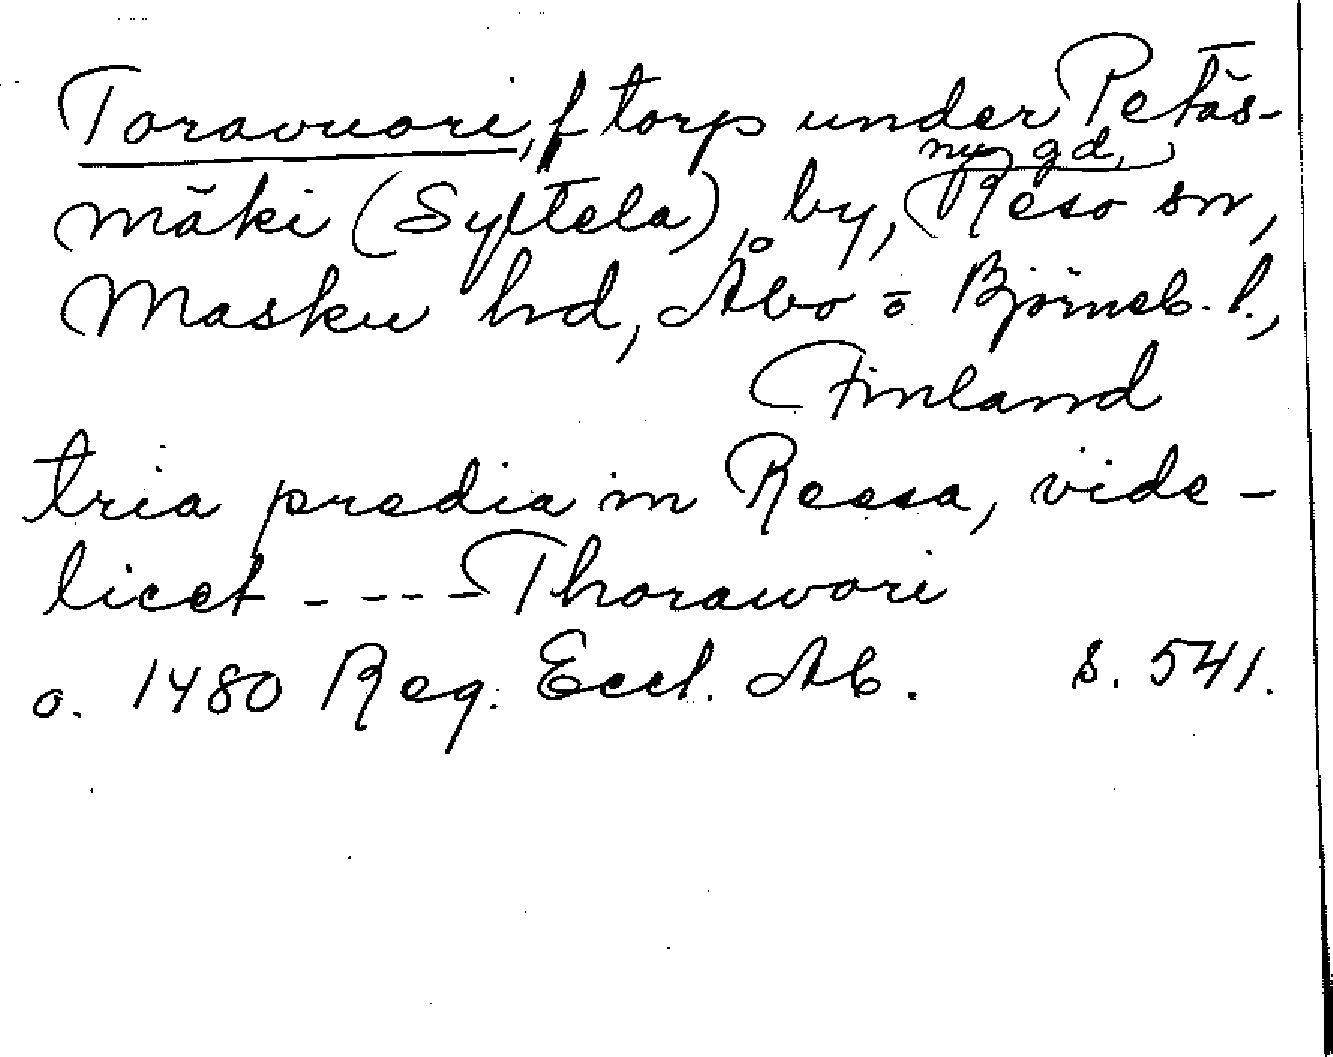 Toravuori, f torp under Petäs-
mäki (Syltela), by, Reso sn,
ny gd,
Masku hd, Åbo o Björneb. l.,
Finland
tria predia in Resa, vide-
licet - - - - Thorawori
o. 1480 Reg. Eccl. Ab. s. 541.